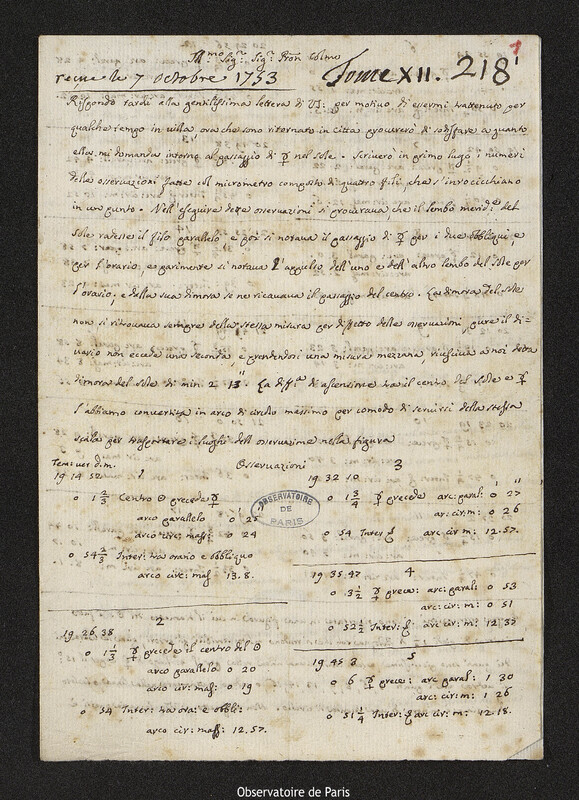 Ill.mo Sig.r Sig.r Pron Colmo
reçue le 7 octobre 1753
Tome XII. 218
1
Rispondo tardi alla gentilissima lettera di VS: per motivo di essermi trattenuto per
qualche tempo in villa, ora che sono ritornato in Città procurerò di sodisfare a quanto
ella mi domanda intorno al passaggio di ☿ nel Sole. Scriverò in primo luogo i numeri
delle osservazioni fatte col micrometro composto di quattro fili che s'incrocicchiano
in un punto. Nell'eseguire dette osservazioni si procurava, che il lembo merid.le del
Sole radesse il filo parallelo e poi si notava il passaggio di ☿ per i due obbliqui, e
per l'orario, e parimente si notava l'appulso dell'uno e dell'altro lembo del Sole per
l'orario, e dalla sua dimora se ne ricavava il passaggio del centro. La dimora del Sole
non si ritrovava sempre della stessa misura per diffetto delle osservazioni, pure il di=
vario non eccede uno secondo, e prendendosi una misura mezzana, riusciva a noi detta
dimora del Sole di min. 2 13". La diff.za di ascensione tra il centro del Sole e ☿
l'abbiamo convertita in arco di circolo massimo per comodo di servirci della stessa
scala per trasportare i luoghi dell'osservazione nella figura
Tem: ver. d. m. Osservazioni
19 14 52. 1
0 1 2/3 Centro ☉ precede ☿
arco parallelo 0 25
arco circ: mass: 0 24
0 54 2/3 Inter: tra orario e obbliquo
arco circ: mass 13.8.
19 26 38 2
0 1 1/3 ☿ precede il centro del ☉
arco parallelo 0 20
arco cir: mass: 0 19
0 54 Inter: tra ora: e obbli:
arco cir: mass: 12.57.
19 32 10 3
0 1 3/4 ☿ precede arc: paral: 0' 27"
arc: cir: m: 0 26
0 54 Inter: arc cir: m: 12.57.
19 35 47 4
0 3 1/2 ☿ prece: arc: paral: 0 53
arc: cir: m: 0 51
0 52 1/2 Inter: arc: cir: m: 12 35
19 45 3 5
0 6 ☿ prece: arc paral: 1 30
arc: cir: m: 1 26
0 51 1/4 Inter: arc cir: m: 12.18.
OBSERVATOIRE
DE
PARIS
Observatoire de Paris